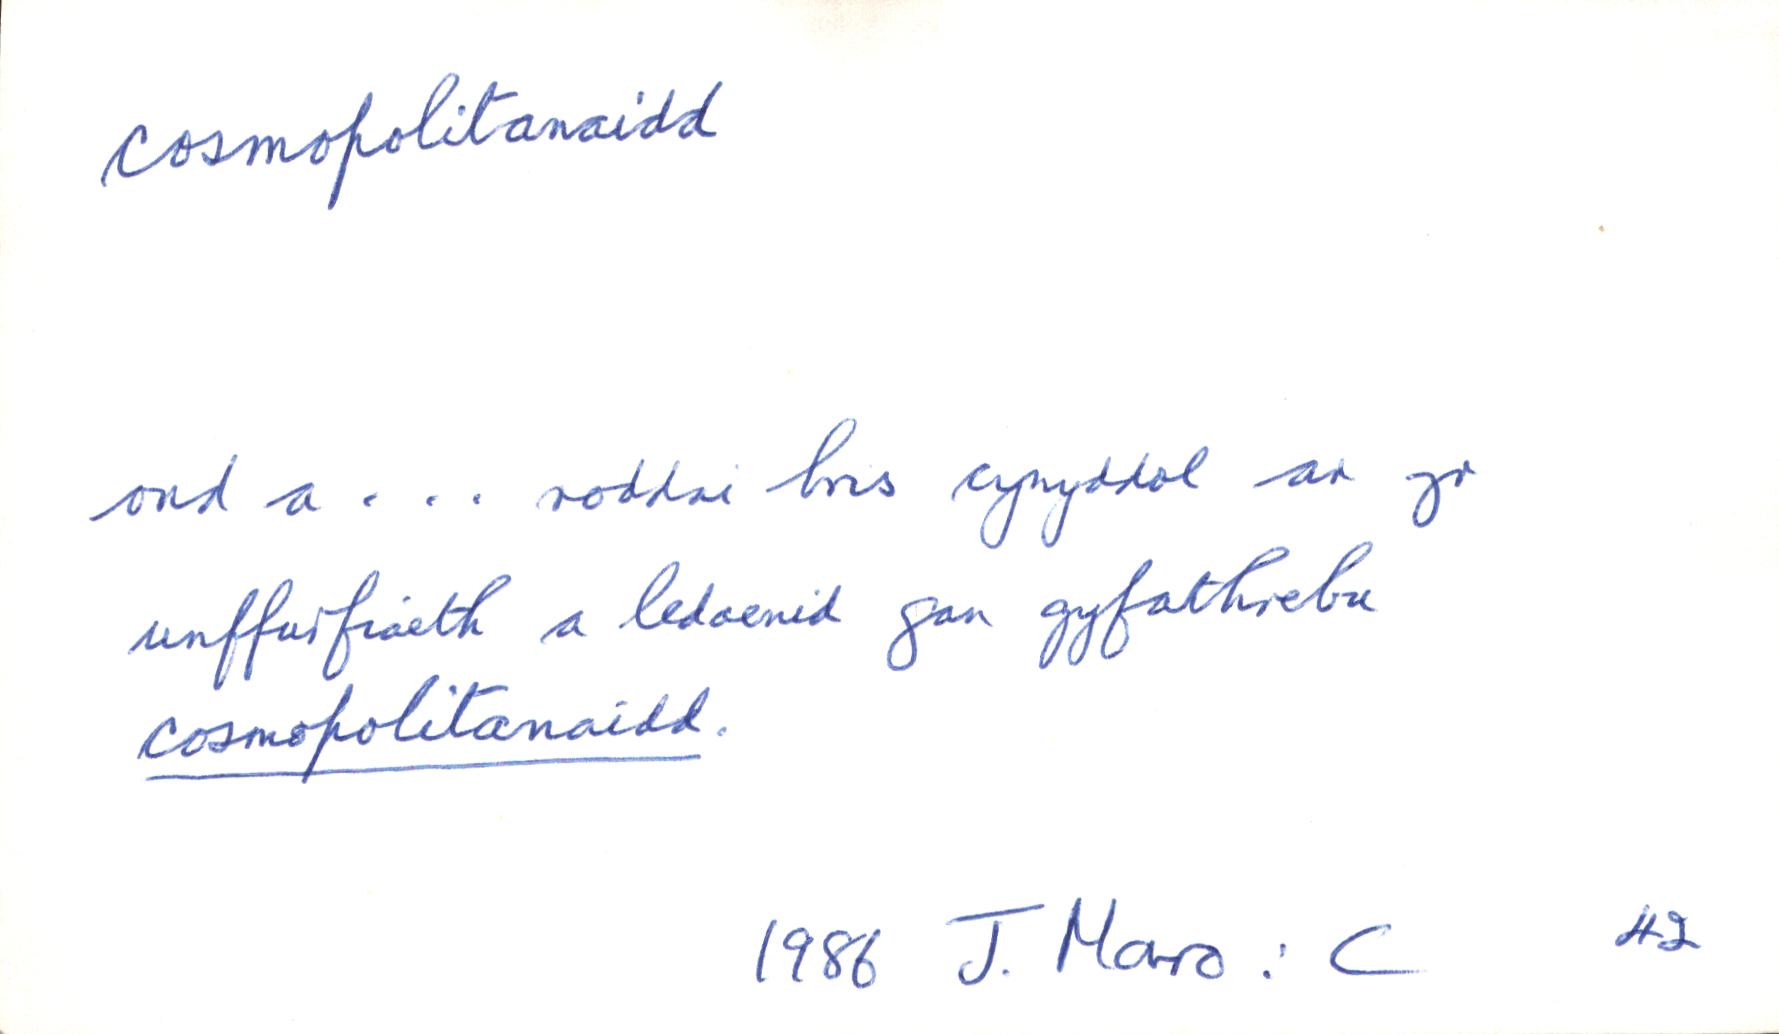 cosmopolitanaidd
ond a . . . roddai bris cynyddol ar yr
unffurfiaeth a ledaenid gan gyfathrebu
cosmopolitanaidd.
1986 J. Marro : C 42